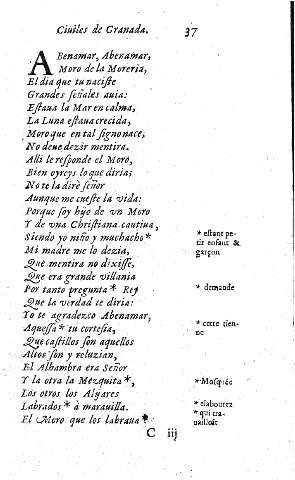 Ciuiles de Granada. 37
ABenamar, Abenamar,
Moro de la Moreria,
El dia que tu naciste
Grandes señales auia:
Estaua la Mar en calma,
La Luna estaua crecida,
Moro que en tal signo nace,
No deue dezir mentira.
Alli le responde el Moro,
Bien oyreys lo que diria;
No te la dirè señor
Aunque me cueste la vida:
Porque soy hijo de vn Moro
Y de vna Christiana cautiua,
Siendo yo niño y muchacho *
Mi madre me lo dezia,
Que mentira no dixisse,
Que era grande villania
Por tanto pregunta * Rey
Que la verdad te diria:
Yo te agradezco Abenamar,
Aquessa * tu cortesia,
Que castillos son aquellos
Altos son y reluzian,
El Alhambra era Señor
Y la otra la Mezquita *,
Los otros los Alixares
Labrados * à marauilla.
El Moro que los labraua *
C iij
* estant pe-
tit enfant &
garçon
* demande
* cette tien-
ne
* Mosquée
* elabourez
* qui tra-
uailloit